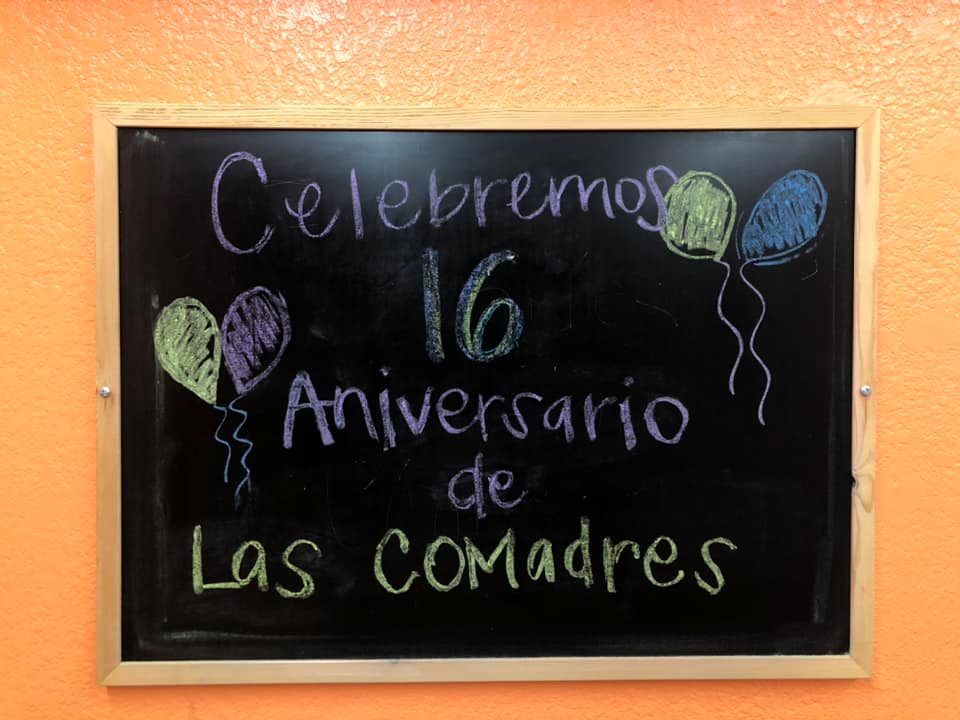 Celebremos
16
Aniversario
de
Las Comadres